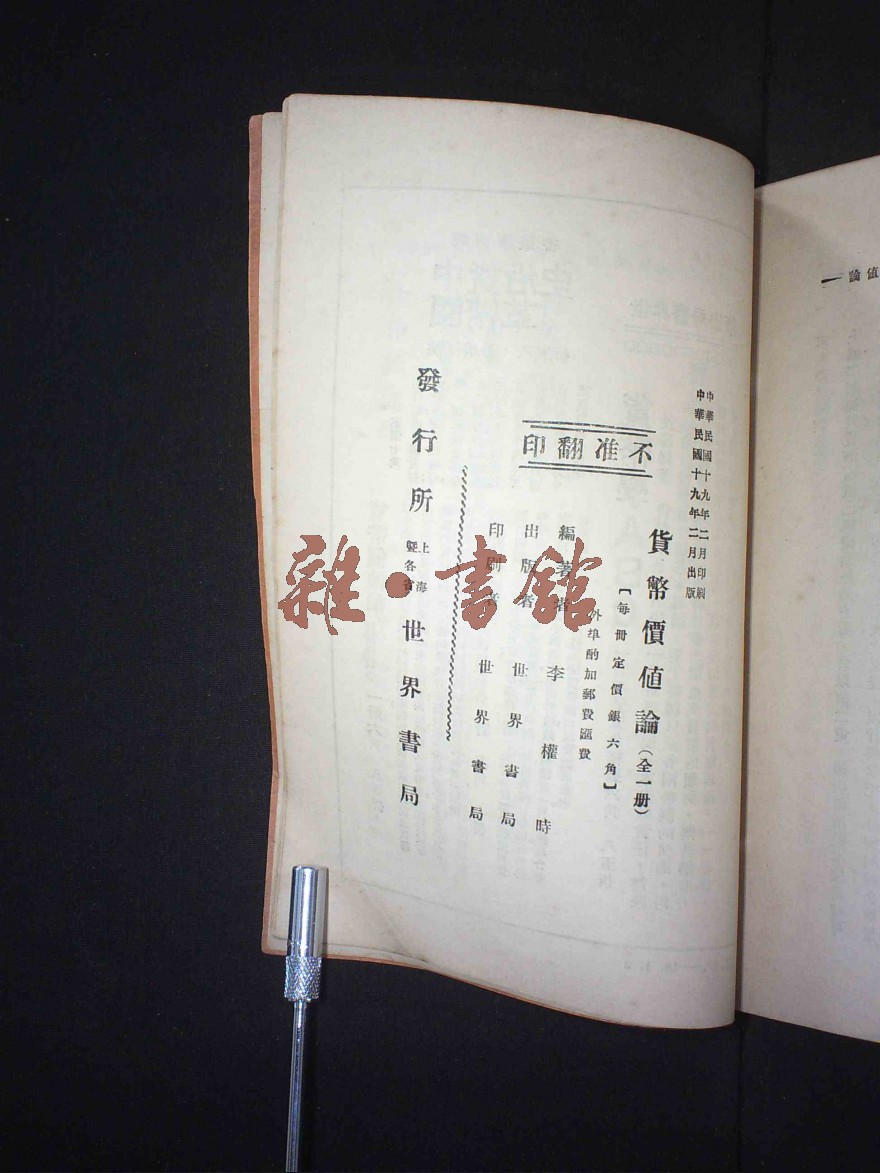 中華民國十九年二月印刷
中華民國十九年二月出版
貨幣價值論（全一册）
【每冊定價銀六角】
外埠酌加郵費匯費
不准翻印
編著者 李權時
出版者 世界書局
印刷者 世界書局
發行所 上海暨各省 世界書局
雜·書館
值論